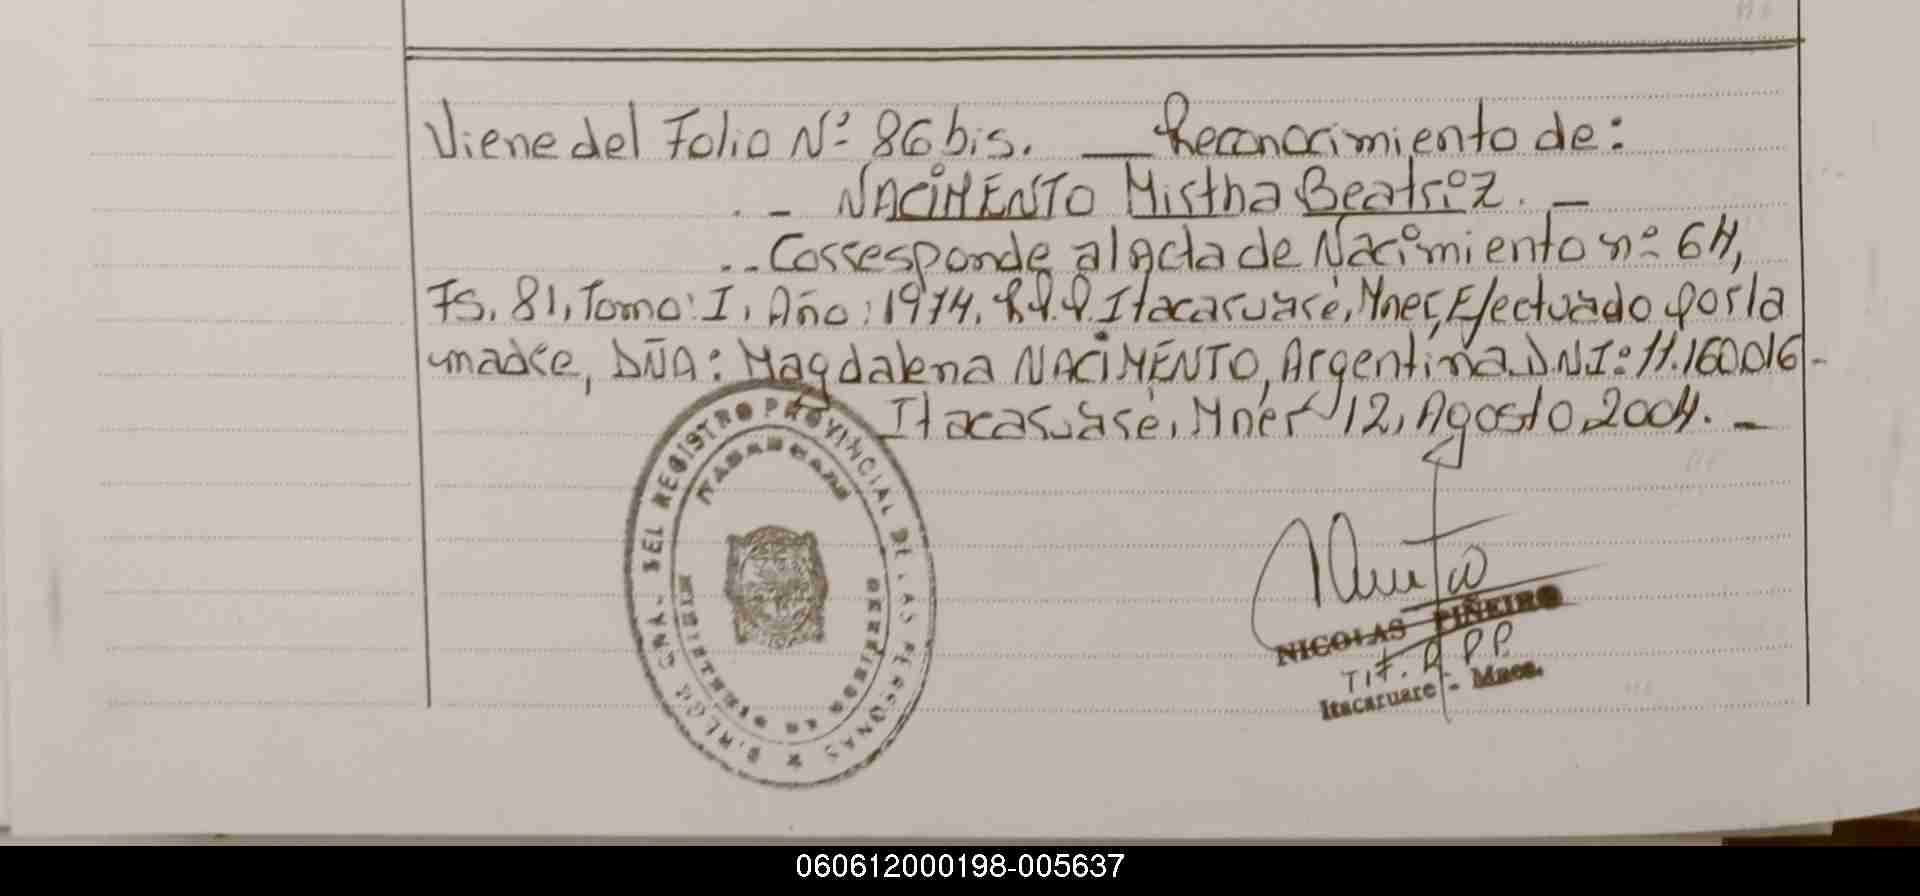 Viene del Folio Nº 86 bis. __ Reconocimiento de:
. - NACIMENTO Mirtha Beatriz. -
.. Corresponde al acta de Nacimiento nº 64,
Fs. 81, Tomo: I, Año: 1974, R.P.P. Itacaruaré, Mnes, Efectuado por la
madre, DÑA: Magdalena NACIMENTO, Argentina D.N.I: 11.160016-
Itacaruaré, Mnes 12, Agosto, 2004. -
DIRECC. GRAL. DEL REGISTRO PROVINCIAL DE LAS PERSONAS
ITACARUARE
NICOLAS PIÑEIRO
Tit. R.P.P.
Itacaruare - Mnes.
060612000198-005637